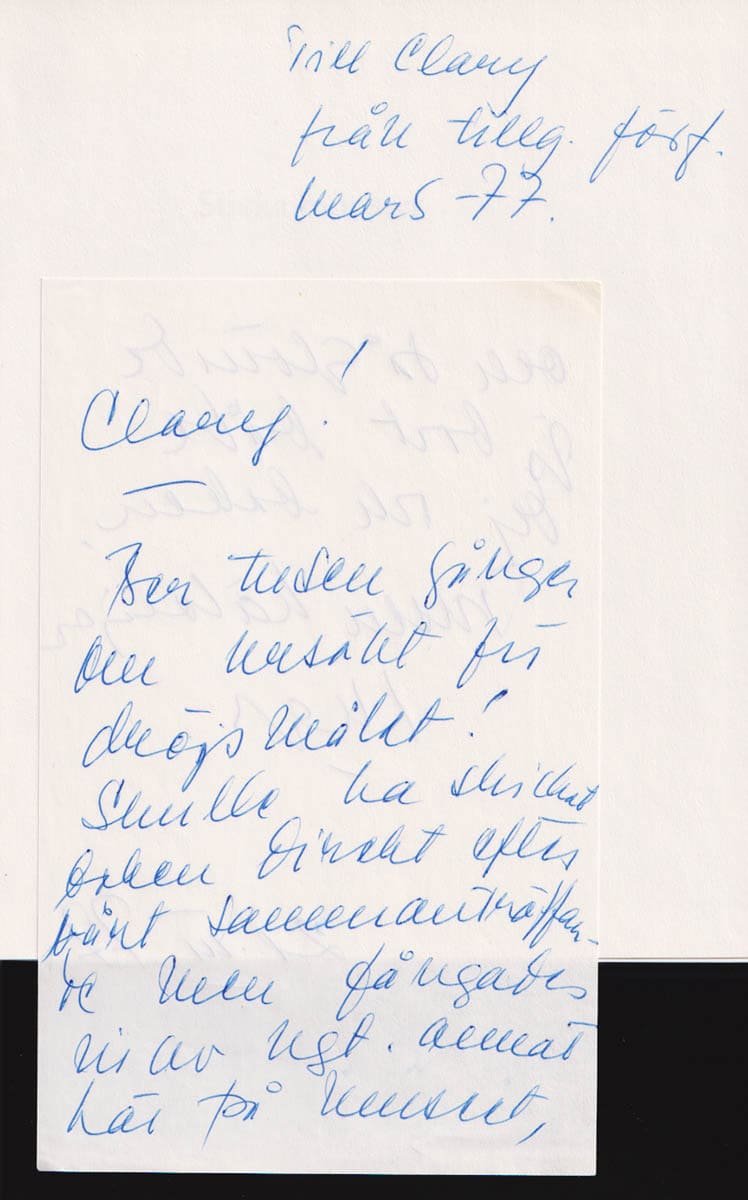 Till Clary
från tillg. förf.
Mars -77.
Clary!
Ber tusen gånger
om ursäkt för
dröjsmålet!
Skulle ha skickat
boken direkt efter
vårt sammanträffan-
de men fångades
in av ngt. annat
här på museet,